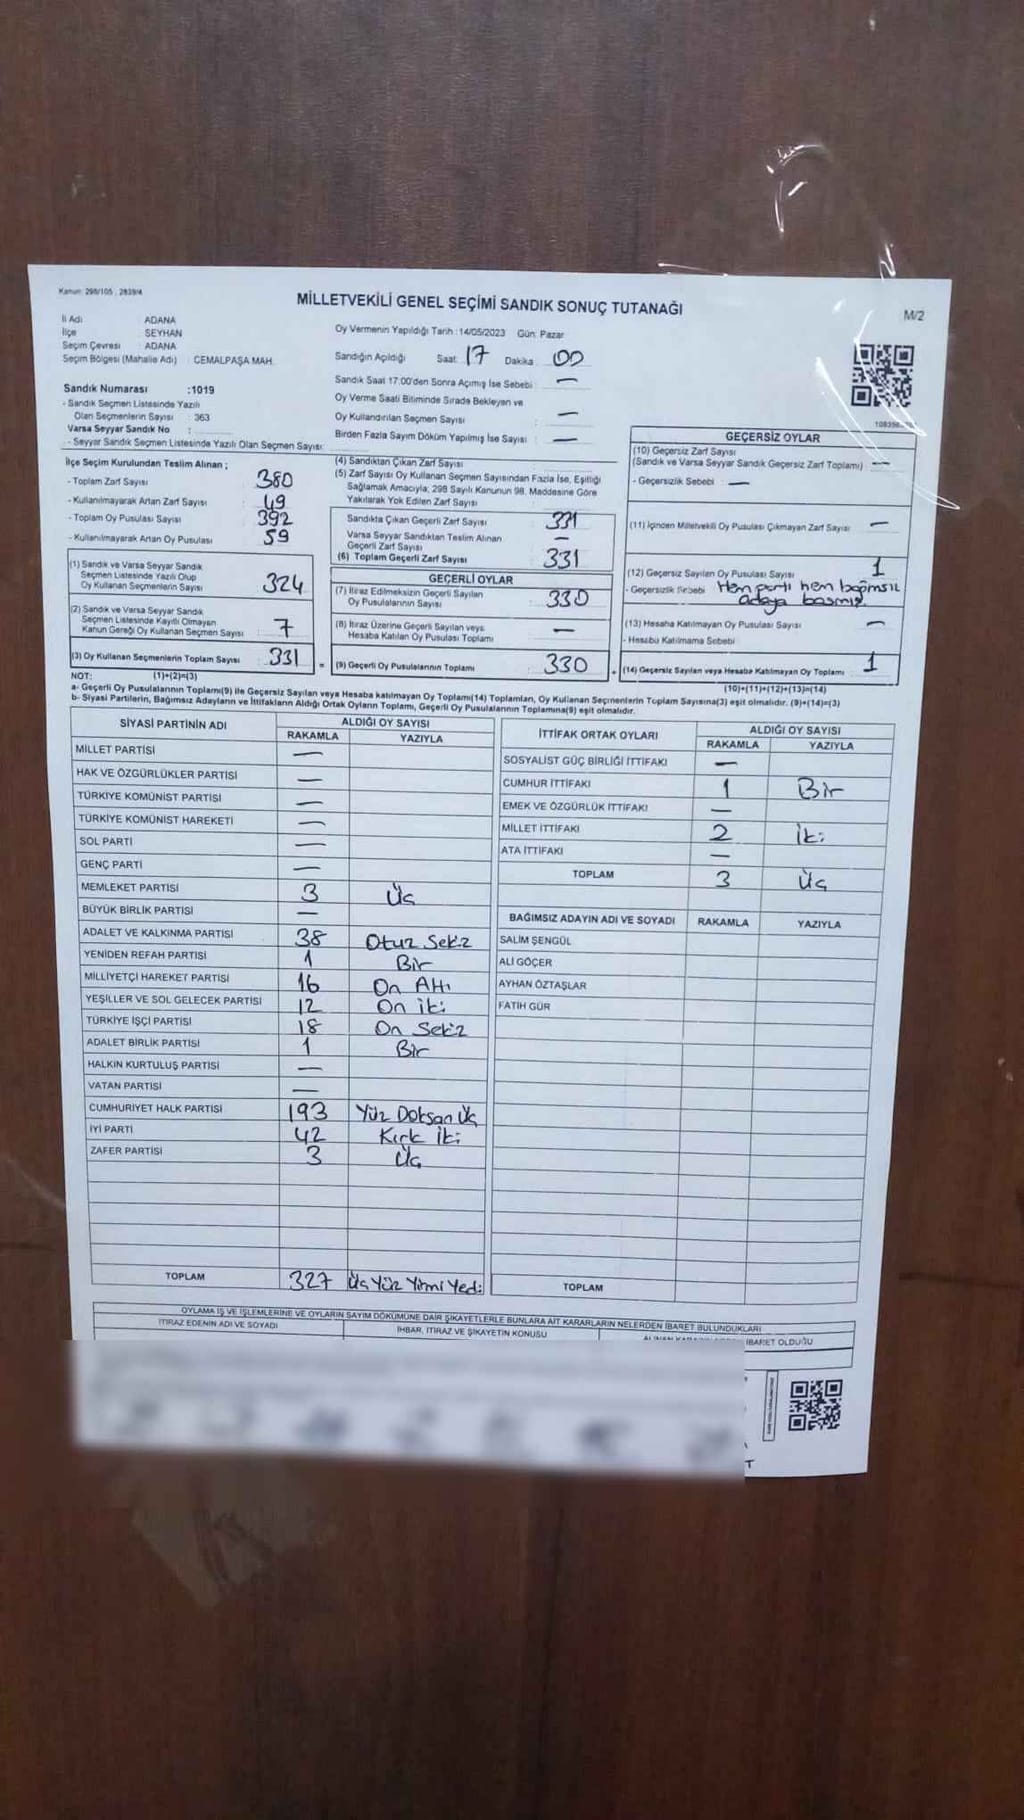 Kanun: 298/105 , 2839/4
MİLLETVEKİLİ GENEL SEÇİMİ SANDIK SONUÇ TUTANAĞI
M/2
İl Adı ADANA
İlçe SEYHAN
Seçim Çevresi ADANA
Seçim Bölgesi (Mahalle Adı) CEMALPAŞA MAH.
Oy Vermenin Yapıldığı Tarih :14/05/2023 Gün: Pazar
Sandığın Açıldığı Saat: 17 Dakika 00
Sandık Saat 17.00'den Sonra Açılmış İse Sebebi —
Oy Verme Saati Bitiminde Sırada Bekleyen ve
Oy Kullandırılan Seçmen Sayısı —
Birden Fazla Sayım Döküm Yapılmış İse Sayısı —
Sandık Numarası :1019
- Sandık Seçmen Listesinde Yazılı
Olan Seçmenlerin Sayısı : 363
Varsa Seyyar Sandık No :
- Seyyar Sandık Seçmen Listesinde Yazılı Olan Seçmen Sayısı:
İlçe Seçim Kurulundan Teslim Alınan ;
- Toplam Zarf Sayısı 380
- Kullanılmayarak Artan Zarf Sayısı 49
- Toplam Oy Pusulası Sayısı 392
- Kullanılmayarak Artan Oy Pusulası 59
(1) Sandık ve Varsa Seyyar Sandık
Seçmen Listesinde Yazılı Olup
Oy Kullanan Seçmenlerin Sayısı 324
(2) Sandık ve Varsa Seyyar Sandık
Seçmen Listesinde Kayıtlı Olmayan
Kanun Gereği Oy Kullanan Seçmen Sayısı 7
(3) Oy Kullanan Seçmenlerin Toplam Sayısı 331 =
(4) Sandıktan Çıkan Zarf Sayısı
(5) Zarf Sayısı Oy Kullanan Seçmen Sayısından Fazla İse, Eşitliği
Sağlamak Amacıyla; 298 Sayılı Kanunun 98. Maddesine Göre
Yakılarak Yok Edilen Zarf Sayısı
Sandıkta Çıkan Geçerli Zarf Sayısı 331
Varsa Seyyar Sandıktan Teslim Alınan
Geçerli Zarf Sayısı —
(6) Toplam Geçerli Zarf Sayısı 331
GEÇERLİ OYLAR
(7) İtiraz Edilmeksizin Geçerli Sayılan
Oy Pusulalarının Sayısı 330
(8) İtiraz Üzerine Geçerli Sayılan veya
Hesaba Katılan Oy Pusulası Toplamı —
(9) Geçerli Oy Pusulalarının Toplamı 330
GEÇERSİZ OYLAR
(10) Geçersiz Zarf Sayısı
(Sandık ve Varsa Seyyar Sandık Geçersiz Zarf Toplamı) —
- Geçersizlik Sebebi : —
(11) İçinden Milletvekili Oy Pusulası Çıkmayan Zarf Sayısı —
(12) Geçersiz Sayılan Oy Pusulası Sayısı 1
- Geçersizlik Sebebi Hem parti hem bağımsız
adaya basmış
(13) Hesaba Katılmayan Oy Pusulası Sayısı —
- Hesaba Katılmama Sebebi
(14) Geçersiz Sayılan veya Hesaba Katılmayan Oy Toplamı 1
NOT: (1)+(2)=(3)
(10)+(11)+(12)+(13)=(14)
a- Geçerli Oy Pusulalarının Toplamı(9) ile Geçersiz Sayılan veya Hesaba katılmayan Oy Toplamı(14) Toplamları, Oy Kullanan Seçmenlerin Toplam Sayısına(3) eşit olmalıdır. (9)+(14)=(3)
b- Siyasi Partilerin, Bağımsız Adayların ve İttifakların Aldığı Ortak Oyların Toplamı, Geçerli Oy Pusulalarının Toplamına(9) eşit olmalıdır.
SİYASİ PARTİNİN ADI ALDIĞI OY SAYISI
RAKAMLA YAZIYLA
MİLLET PARTİSİ —
HAK VE ÖZGÜRLÜKLER PARTİSİ —
TÜRKİYE KOMÜNİST PARTİSİ —
TÜRKİYE KOMÜNİST HAREKETİ —
SOL PARTİ —
GENÇ PARTİ —
MEMLEKET PARTİSİ 3 Üç
BÜYÜK BİRLİK PARTİSİ —
ADALET VE KALKINMA PARTİSİ 38 Otuz Sekiz
YENİDEN REFAH PARTİSİ 1 Bir
MİLLİYETÇİ HAREKET PARTİSİ 16 On Altı
YEŞİLLER VE SOL GELECEK PARTİSİ 12 On iki
TÜRKİYE İŞÇİ PARTİSİ 18 On Sekiz
ADALET BİRLİK PARTİSİ 1 Bir
HALKIN KURTULUŞ PARTİSİ —
VATAN PARTİSİ —
CUMHURİYET HALK PARTİSİ 193 Yüz Doksan Üç
İYİ PARTİ 42 Kırk iki
ZAFER PARTİSİ 3 Üç
TOPLAM 327 Üç Yüz Yirmi Yedi
İTTİFAK ORTAK OYLARI ALDIĞI OY SAYISI
RAKAMLA YAZIYLA
SOSYALİST GÜÇ BİRLİĞİ İTTİFAKI —
CUMHUR İTTİFAKI 1 Bir
EMEK VE ÖZGÜRLÜK İTTİFAKI —
MİLLET İTTİFAKI 2 İki
ATA İTTİFAKI —
TOPLAM 3 Üç
BAĞIMSIZ ADAYIN ADI VE SOYADI RAKAMLA YAZIYLA
SALİM ŞENGÜL
ALİ GÖÇER
AYHAN ÖZTAŞLAR
FATİH GÜR
TOPLAM
OYLAMA İŞ VE İŞLEMLERİNE VE OYLARIN SAYIM DÖKÜMÜNE DAİR ŞİKAYETLERLE BUNLARA AİT KARARLARIN NELERDEN İBARET BULUNDUKLARI
İTİRAZ EDENİN ADI VE SOYADI İHBAR, İTİRAZ VE ŞİKAYETİN KONUSU İBARET OLDUĞU